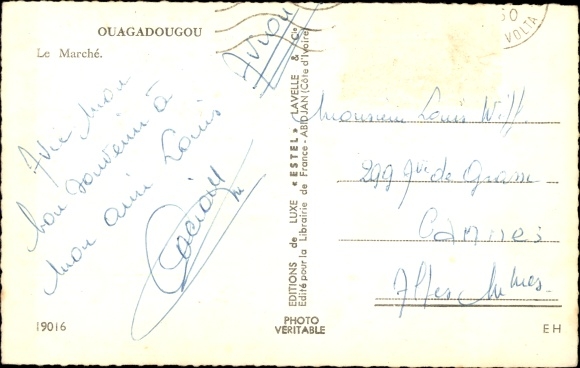 OUAGADOUGOU
Le Marché.
Avion
50
VOLTA
Avec mon
bon souvenir à
mon ami Louis
EDITIONS de LUXE « ESTEL » LAVELLE & Cie
Edité pour la Librairie de France - ABIDJAN (Côte d'Ivoire)
Monsieur Louis Wiff
299 de Grasse
CANNES
Alpes Mmes.
19016
PHOTO
VERITABLE
EH